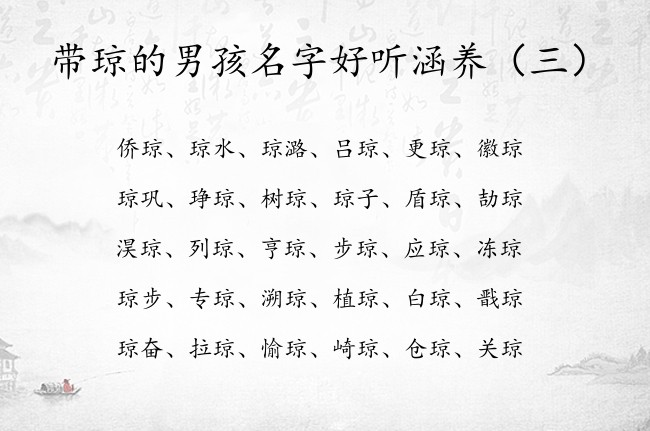 带琼的男孩名字好听涵养（三）
侨琼、琼水、琼潞、吕琼、更琼、徽琼
琼巩、琤琼、树琼、琼子、盾琼、劼琼
淏琼、列琼、亨琼、步琼、应琼、冻琼
琼步、专琼、溯琼、植琼、白琼、戬琼
琼奋、拉琼、愉琼、崎琼、仓琼、关琼